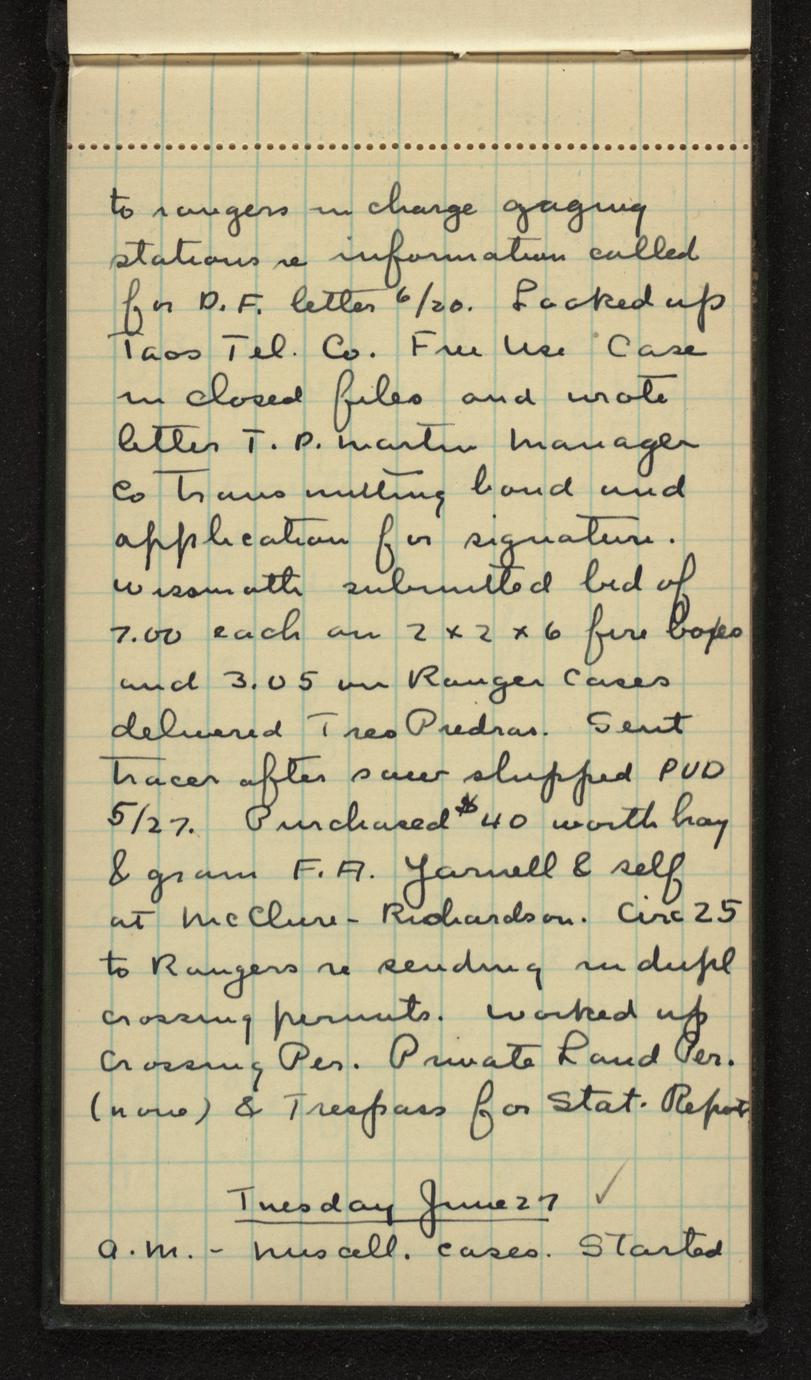 to rangers in charge gaging
stations re information called
for D.F. letter 6/20. Looked up
Taos Tel. Co. Free Use Case
in closed files and wrote
letter T. P. Martin Manager
Co transmitting bond and
application for signature.
Wissmath submitted bid of
7.00 each on 2 x 2 x 6 fire boxes
and 3.05 on Ranger Cases
delivered Tres Piedras. Sent
tracer after saw shipped PUD
5/27. Purchased $40 worth hay
& grain F.A. Yarnell & self
at McClure-Richardson. Circ 25
to Rangers re sending in dupl
crossing permits. Worked up
Crossing Per. Private Land Per.
(none) & Trespass for Stat. Report
Tuesday June 27 ✓
A.M. - Miscell. cases. Started